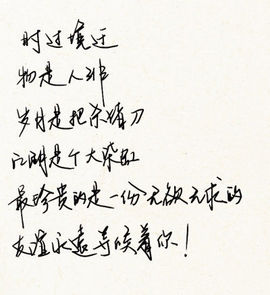 时过境迁
物是人非
岁月是把杀猪刀
江湖是个大染缸
最珍贵的是一份无欲无求的
友谊永远等候着你！